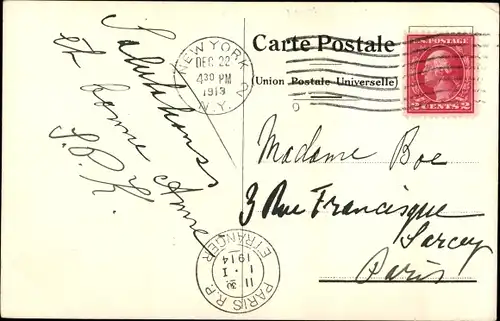 Salutations
et bonne Année
S.P.K.
NEW YORK
DEC 22
4 30 PM
1913
N.Y.
Carte Postale
(Union Postale Universelle)
U.S. POSTAGE
2 CENTS 2
Madame Boe
3 Rue Francisque
Sarcey
Paris
PARIS R.P.
11
1 · 1
1914
ETRANGER